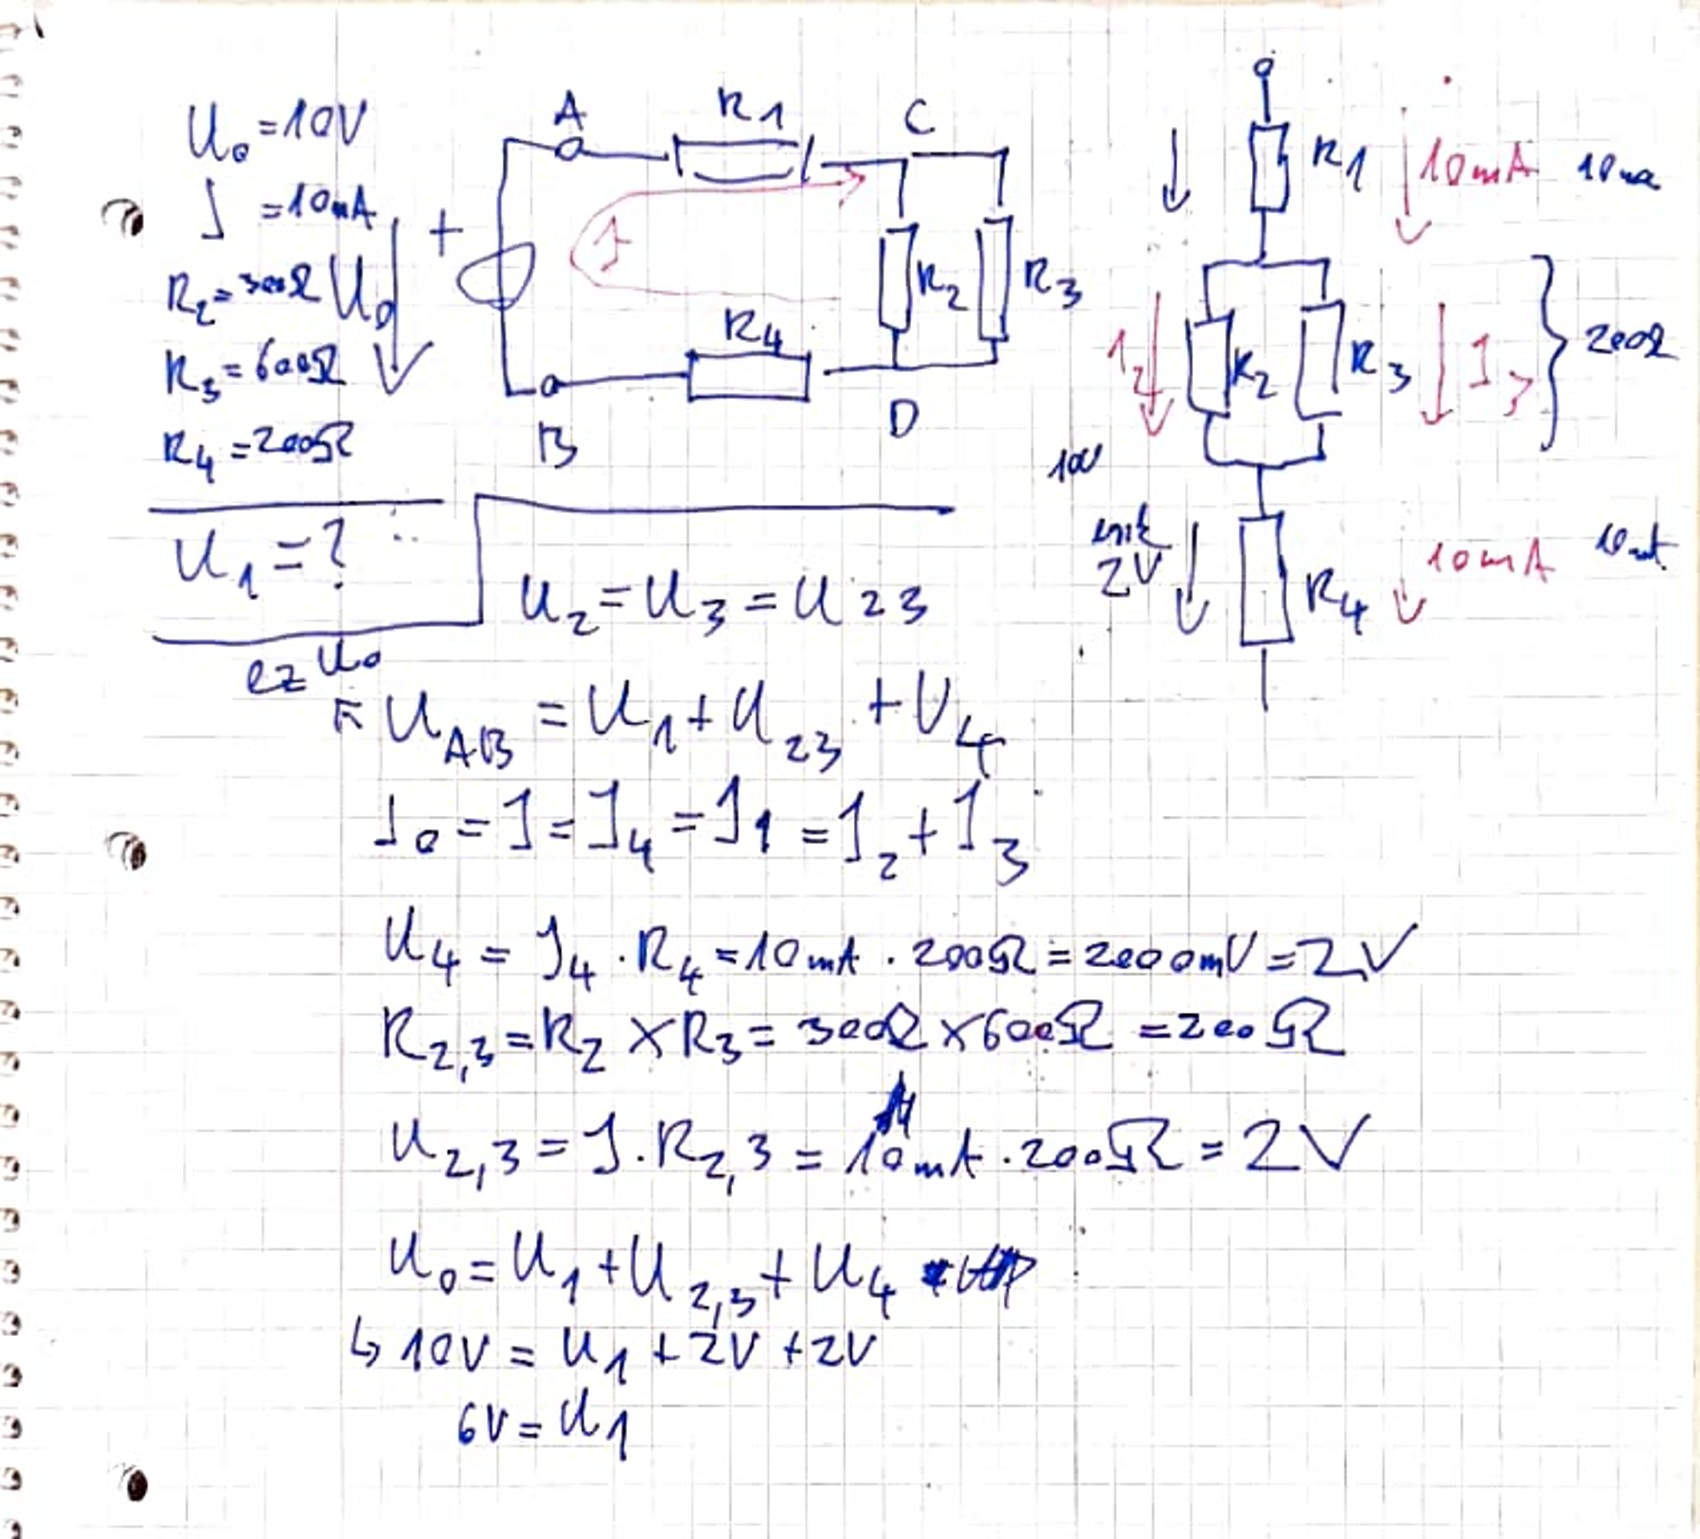 U₀ = 10V
I = 10mA
R₂ = 300Ω
R₃ = 600Ω
R₄ = 200Ω
U₁ = ?
U₀
+
A
R1
C
I
R₂
R₃
R₄
B
D
R1
10mA
I₂
R₂
R₃
I₃
200Ω
10V
2V
R₄
10mA
U₂ = U₃ = U₂₃
ez U₀
U_AB = U₁ + U₂₃ + U₄
I₀ = I = I₄ = I₁ = I₂ + I₃
U₄ = I₄ · R₄ = 10mA · 200Ω = 2000mV = 2V
R₂,₃ = R₂ × R₃ = 300Ω × 600Ω = 200Ω
U₂,₃ = I · R₂,₃ = 10mA · 200Ω = 2V
U₀ = U₁ + U₂,₃ + U₄
↳ 10V = U₁ + 2V + 2V
6V = U₁